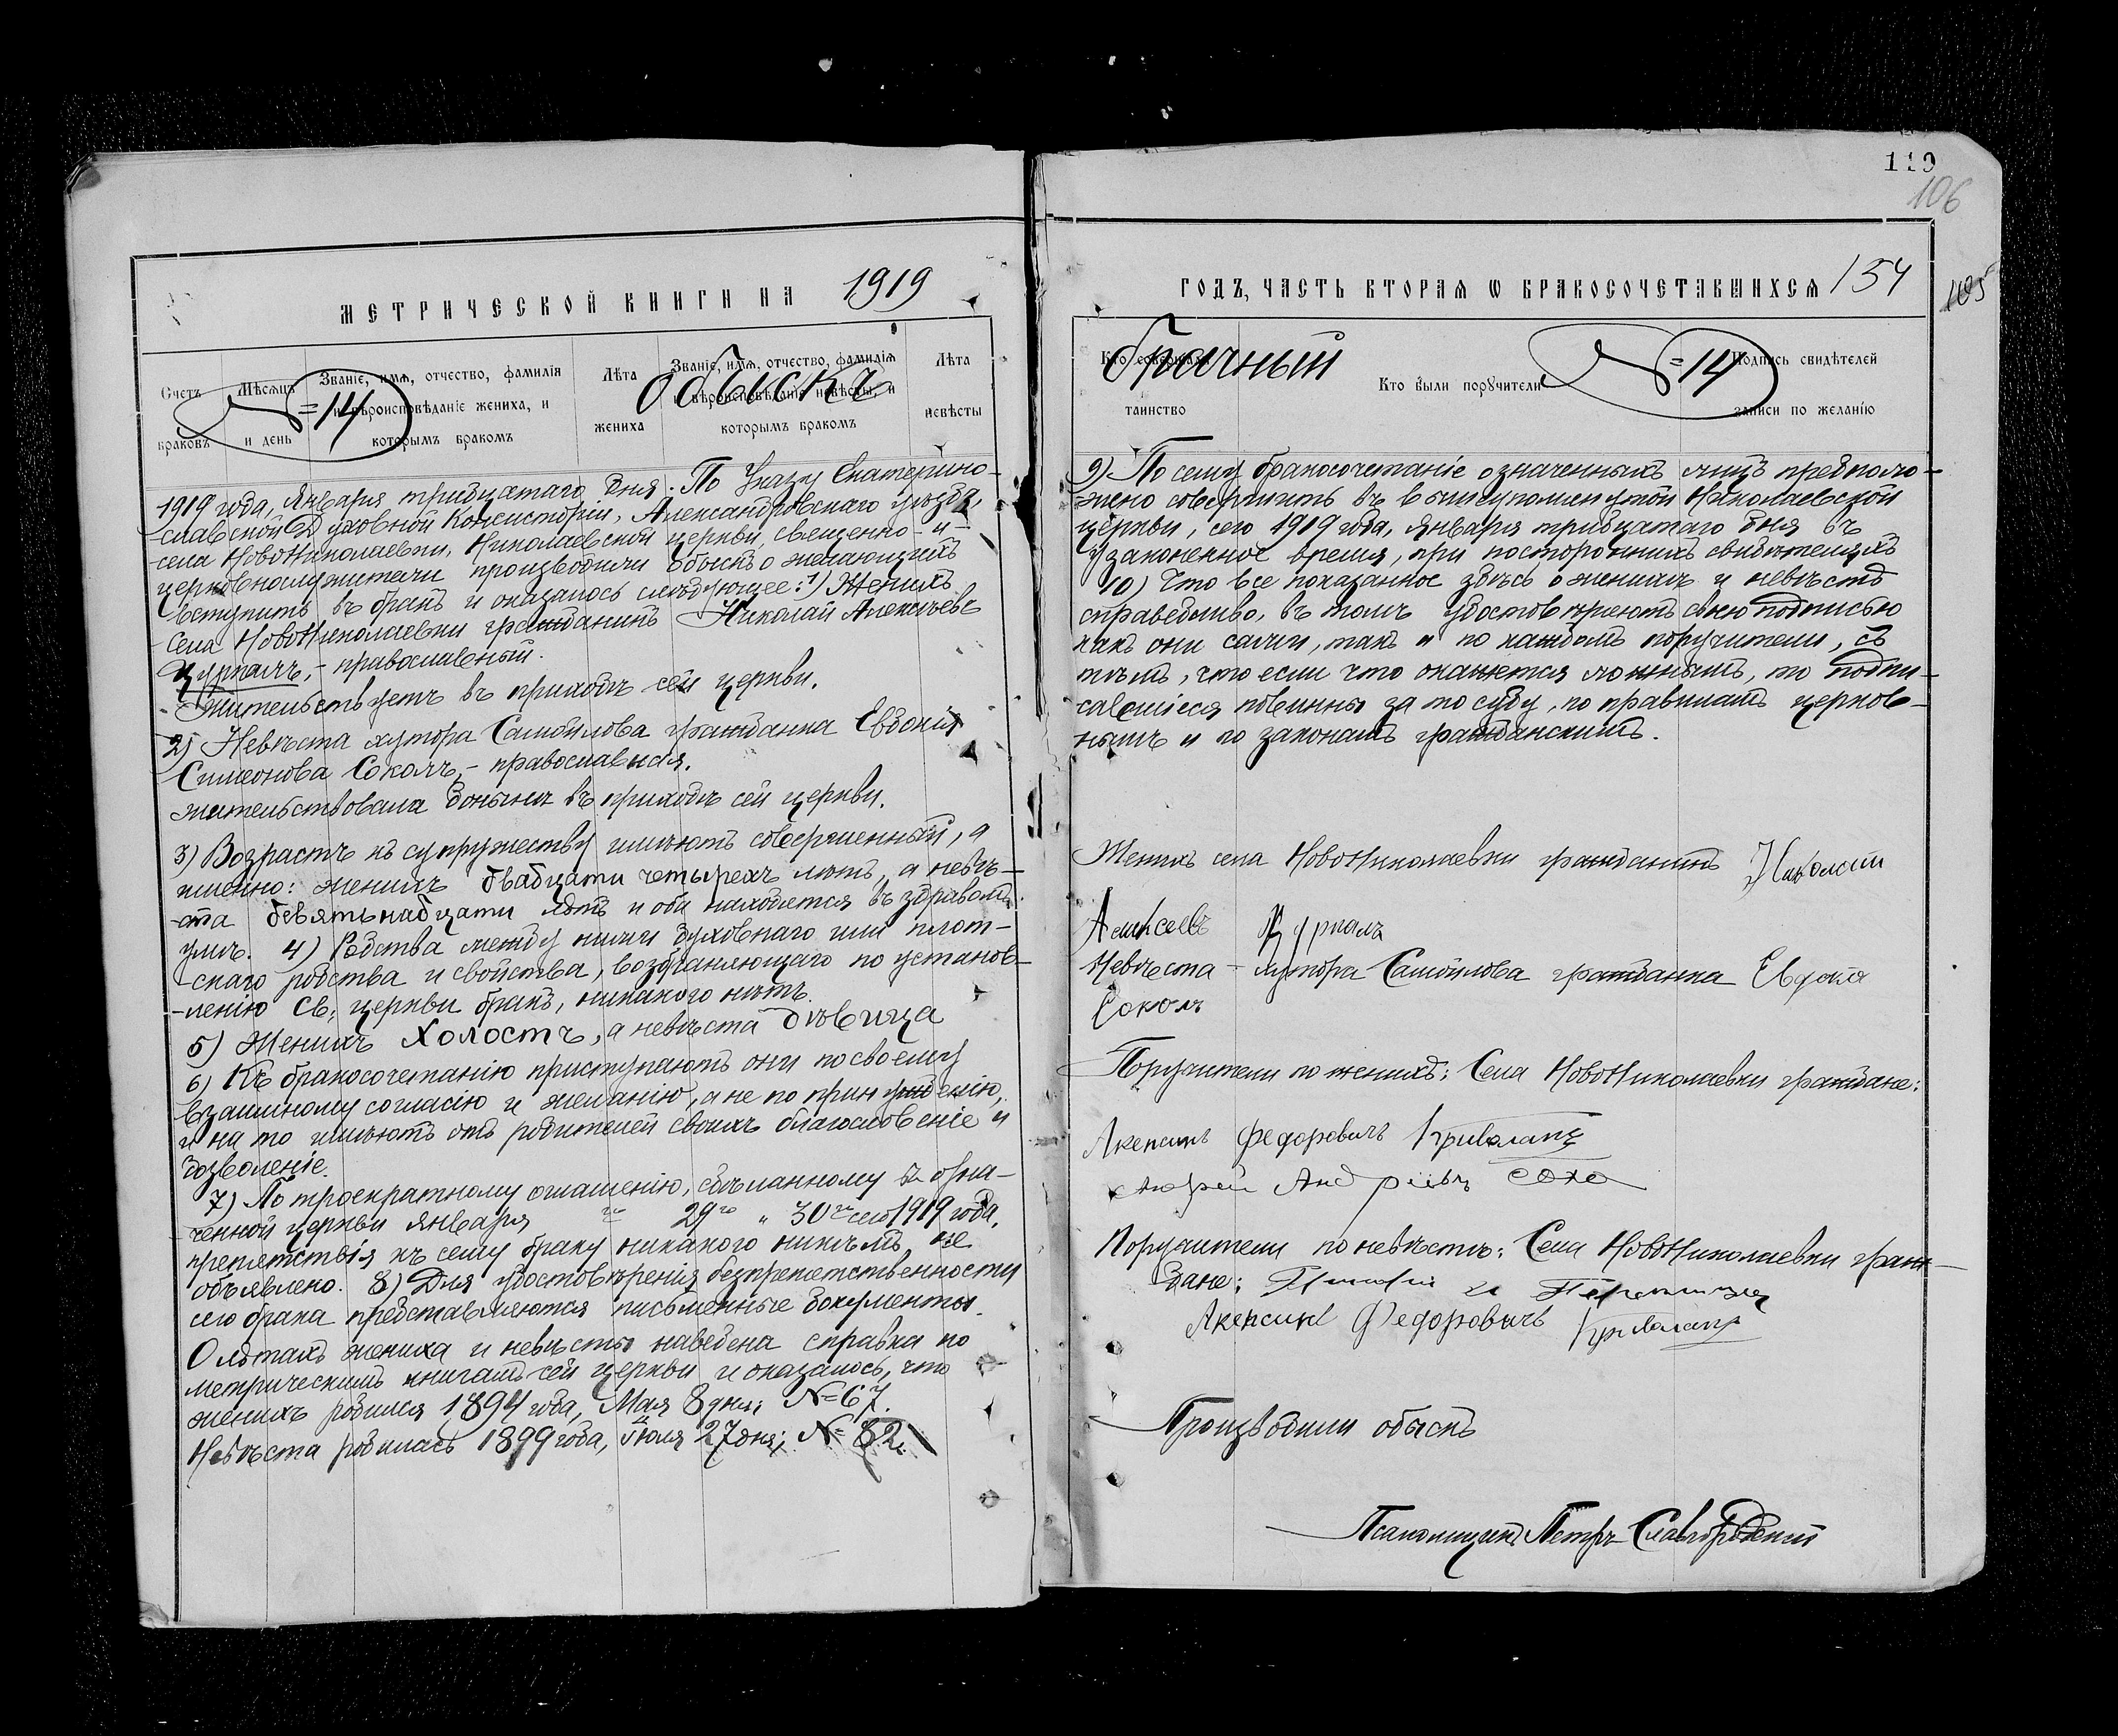 119
106
105
МЕТРИЧЕСКОЙ КНИГИ НА 1919
Счетъ браковъ
Мѣсяцъ и день
Званіе, имя, отчество, фамилія и вѣроисповѣданіе жениха, и которымъ бракомъ
Лѣта жениха
Званіе, имя, отчество, фамилія и вѣроисповѣданіе невѣсты, и которымъ бракомъ
Лѣта невѣсты
№ 14
Обыскъ
1919 года, Января тридцатаго дня. По Указу Екатерино-
славской Духовной Консисторіи, Александровскаго уѣзда,
села НовоНиколаевки, Николаевской церкви, священно- и-
церковнослужители производили обыскъ о желающихъ
вступить въ бракъ и оказалось слѣдующее: 1) Женихъ
села НовоНиколаевки гражданинъ Николай Алексѣевъ
Цуркалъ, - православный.
Жительствуетъ въ приходѣ сей церкви.
2) Невѣста хутора Самойлова гражданка Евдокія
Симеонова Соколъ, - православная.
жительствовала донынѣ въ приходѣ сей церкви.
3) Возрастъ къ супружеству имѣютъ совершенный, а
именно: женихъ двадцати четырехъ лѣтъ, а невѣ-
ста девятьнадцати лѣтъ и оба находятся въ здравомъ
умѣ. 4) Родства между ними духовнаго или плот-
скаго родства и свойства, возбраняющаго по установ-
-ленію Св. церкви бракъ, никакого нѣтъ.
5) Женихъ Холостъ, а невѣста дѣвица
6) Къ бракосочетанію приступаютъ они по своему
взаимному согласію и желанію, а не по принужденію,
и на то имѣютъ отъ родителей своихъ благословеніе и
дозволеніе.
7) По троекратному оглашенію, сдѣланному въ озна-
ченной церкви Января 29го " 30го сего 1919 года,
препятствія къ сему браку никакого никѣмъ не
объявлено. 8) Для удостовѣренія безпрепятственности
сего брака представляются письменные документы.
О лѣтахъ жениха и невѣсты наведена справка по
метрическимъ книгамъ сей церкви и оказалось, что
женихъ родился 1894 года, Мая 8 дня; № 67.
Невѣста родилась 1899 года, Іюля 27 дня; № 82.
ГОДЪ, ЧАСТЬ ВТОРАЯ Ѡ БРАКОСОЧЕТАВШИХСЯ 154
Кто совершалъ таинство
Кто были поручители
Подпись свидѣтелей записи по желанію
брачный
№ 14
9) По сему бракосочетаніе означенныхъ лицъ предполо-
жено совершить въ вышеупомянутой Николаевской
церкви, сего 1919 года, Января тридцатаго дня въ
узаконенное время, при постороннихъ свидѣтеляхъ
10) Что все показанное здѣсь о женихѣ и невѣстѣ
справедливо, въ томъ удостовѣряютъ своею подписью
какъ они сами, такъ и по каждомъ поручители, съ
тѣмъ, что если что окажется ложнымъ, то подпи-
савшіеся повинны за то суду, по правиламъ церков-
нымъ и по законамъ гражданскимъ.
Женихъ села НовоНиколаевки гражданинъ Николай
Алексеевъ Цуркалъ
Невѣста - хутора Самойлова гражданка Евдокія
Соколъ
Поручители по женихѣ: Села НовоНиколаевки граждане:
Федоровичъ Криволапъ
Андрей Сохо
Поручители по невѣстѣ: Села НовоНиколаевки граж-
дане:
Федоровичъ Криволапъ
Производили обыскъ
Псаломщикъ Петръ Славгородскій